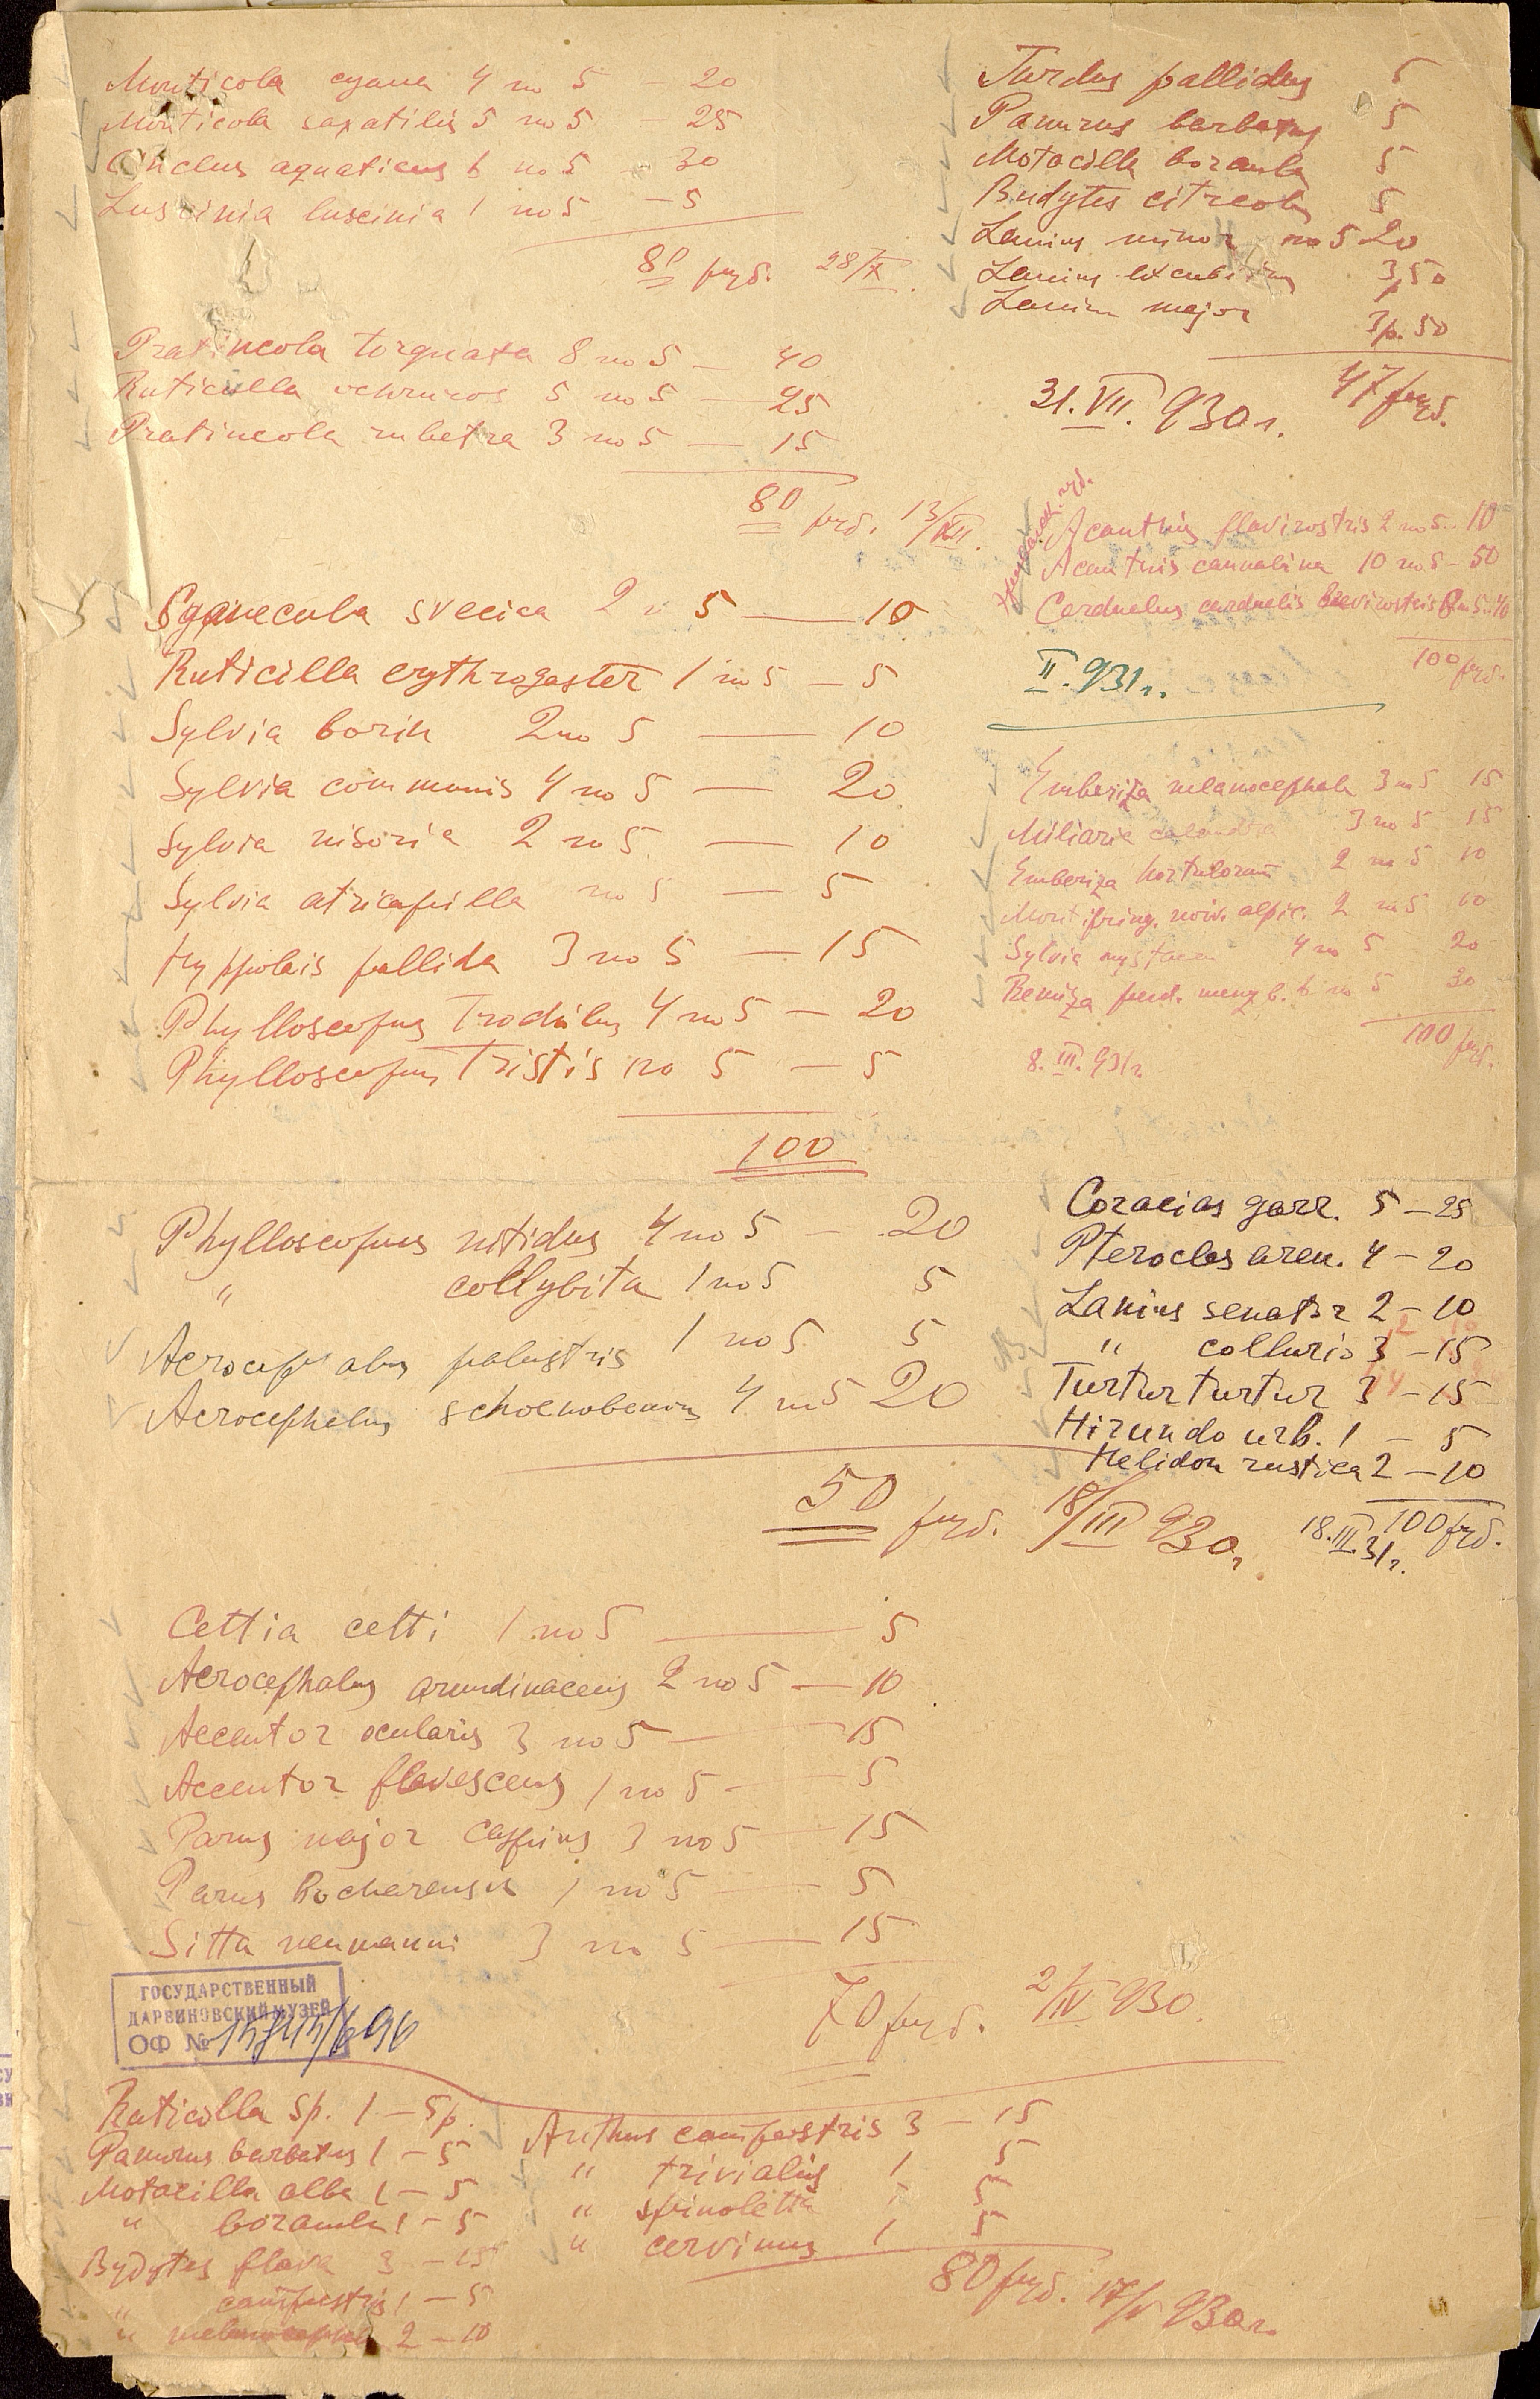 Monticola cyana 4 по 5 - 20
Monticola saxatilis 5 по 5 - 25
Cinclus aquaticus 6 по 5 - 30
Luscinia luscinia 1 по 5 - 5
80 руб. 28/X.
Pratincola torquata 8 по 5 - 40
Ruticilla ochruros 5 по 5 25
Pratincola rubetra 3 по 5 - 15
80 руб. 13/XII.
Cyanecula svecica 2 5 - 10
Ruticilla erythrogaster 1 по 5 - 5
Sylvia borin 2 по 5 - 10
Sylvia communis 4 по 5 - 20
Sylvia nisoria 2 по 5 - 10
Sylvia atricapilla по 5 - 5
Hyppolais pallida 3 по 5 - 15
Phylloscopus Trochilus 4 по 5 - 20
Phylloscopus Tristis по 5 - 5
100
Phylloscopus nitidus 4 по 5 - 20
" collybita 1 по 5 5
Acrocephalus palustris 1 по 5 5
Acrocephalus schoenobenus 4 по 5 20
50 руб. 18/III 930г.
Cettia cetti 1 по 5 - 5
Acrocephalus arundinaceus 2 по 5 - 10
Accentor ocularis 3 по 5 - 15
Accentor flavescens 1 по 5 - 5
Parus major caspius 3 по 5 - 15
Parus bocharensis 1 по 5 - 5
Sitta neumanni 3 по 5 - 15
70 руб. 2/IV 930.
ГОСУДАРСТВЕННЫЙ
ДАРВИНОВСКИЙ МУЗЕЙ
ОФ №
Ruticilla sp. 1 - 5р.
Panurus barbatus 1 - 5
Motacilla alba 1 - 5
" boarula 1 - 5
Bydytes flava 3 - 15
" campestris 1 - 5
" 2 - 10
Anthus campestris 3 - 15
" trivialis 1 5
" spinoletta 1 5
" cervinus 1 5
80 руб. 17/V 930г.
Turdus pallidus 5
Panurus barbatus 5
Motacilla boarula 5
Budytes citreola 5
Lanius minor по 5 20
Lanius excubitor 3,50
Lanius major 3р. 50
47 руб.
31.VII.930г.
Acanthis flavirostris 2 по 5.. 10
Acanthis cannabina 10 по 5 - 50
Carduelus carduelis brevirostris 8 по 5..40
100 руб.
II.931г.
Emberiza melanocephala 3 по 5 15
Miliaria calandra 3 по 5 15
Emberiza hortulorum 2 по 5 10
Montifring. niv. alpic. 2 по 5 10
Sylvia mystacea 4 по 5 20
Remiza pend. menzb. 6 по 5 30
100 руб.
8.III.931г.
Coracias garr. 5 - 25
Pterocles aren. 4 - 20
Lanius senator 2 - 10
" collurio 3 - 15
Turtur turtur 3 - 15
Hirundo urb. 1 - 5
Helidon rustica 2 - 10
100 руб.
18.III.31г.